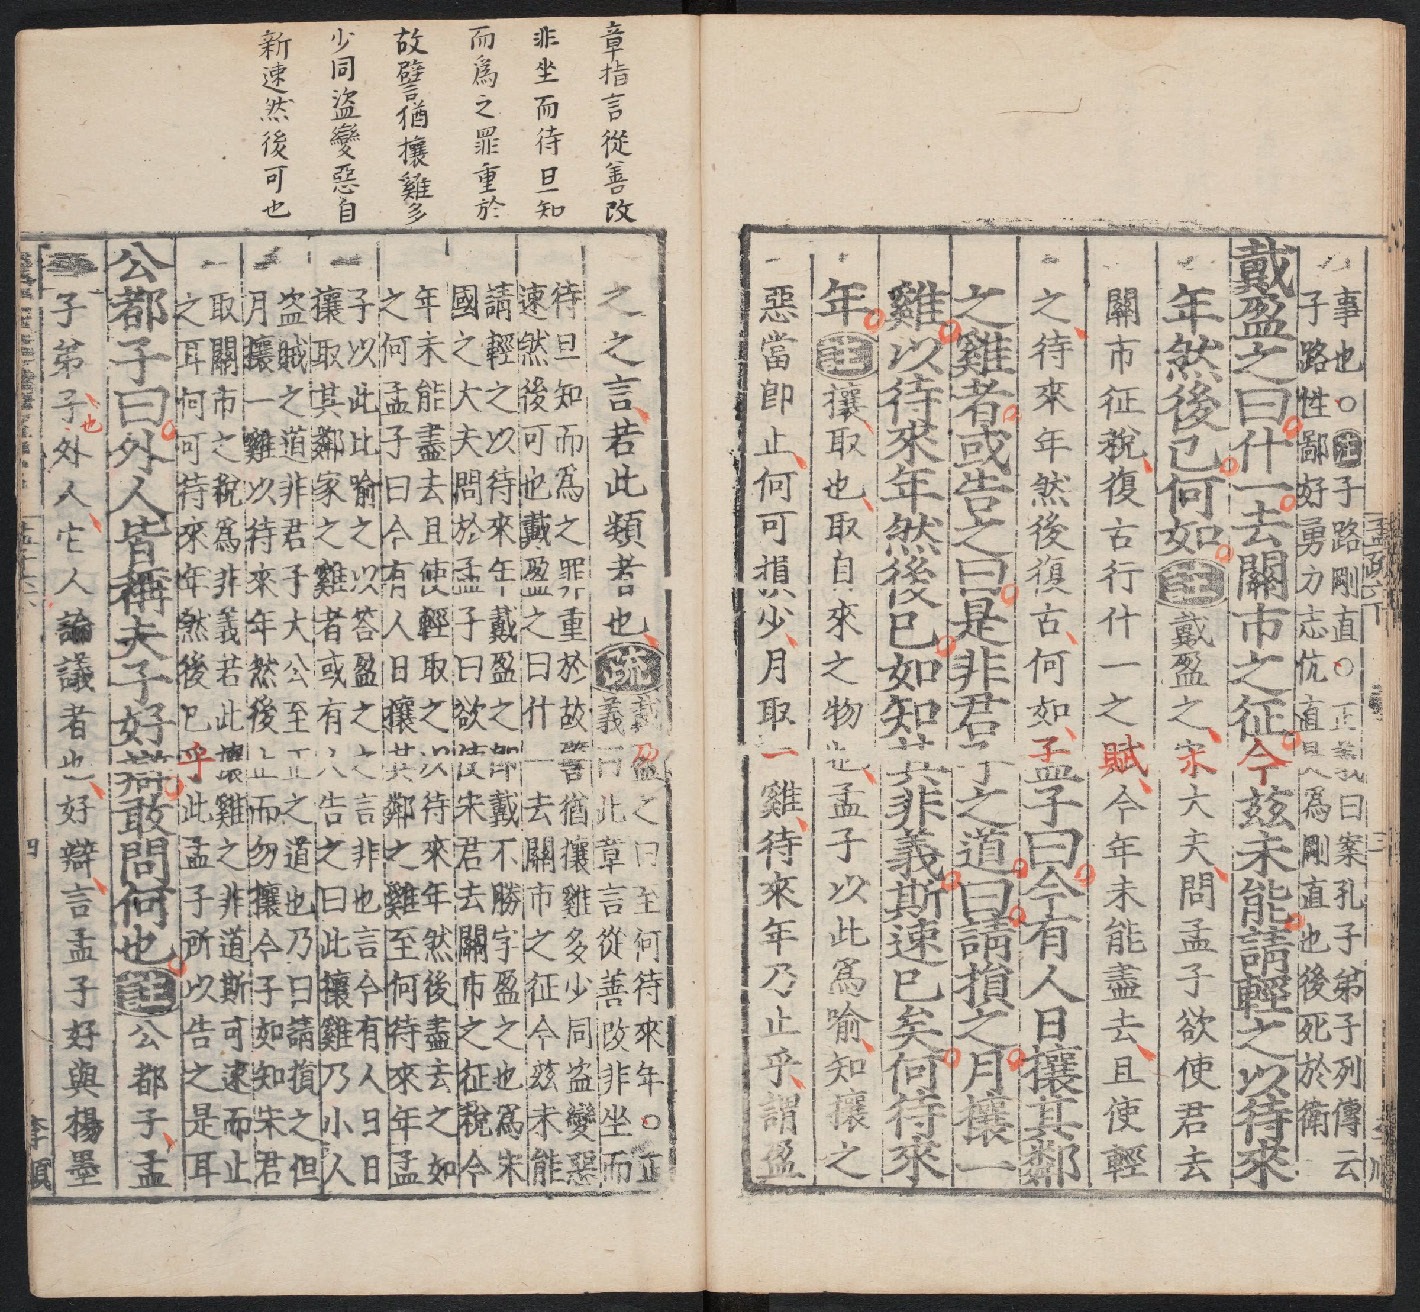 孟疏六下 三
事也○注子路剛直○正義曰案孔子弟子列傳云
子路性鄙好勇力志伉直是爲剛直也後死於衛
戴盈之曰什一去關市之征今茲未能請輕之以待來
年然後已何如注戴盈之宋大夫問孟子欲使君去
關市征稅復古行什一之賦今年未能盡去且使輕
之待來年然後復古何如孟子曰今有人日攘其鄰
之雞者或告之曰是非君子之道曰請損之月攘一
雞以待來年然後已如知其非義斯速已矣何待來
年注攘取也取自來之物也孟子以此爲喻知攘之
惡當即止何可損少月取一雞待來年乃止乎謂盈
章指言從善改
非坐而待旦知
而爲之罪重於
故譬猶攘雞多
少同盜變惡自
新速然後可也
之之言若此類者也疏戴盈之曰至何待來年○正
義曰此章言從善改非坐而
待旦知而爲之罪重於故譬猶攘雞多少同盜變惡
速然後可也戴盈之曰什一去關市之征今茲未能
請輕之以待來年戴盈之即戴不勝字盈之也爲宋
國之大夫問於孟子曰欲使宋君去關市之征稅今
年未能盡去且使輕取之以待來年然後盡去之如
之何孟子曰今有人日攘其鄰之雞至何待來年孟
子以此比喻之以答盈之之言非也言今有人日日
攘取其鄰家之雞者或有人告之曰此攘雞乃小人
盜賊之道非君子大公至正之道也乃曰請損之但
月攘一雞以待來年然後止而勿攘今子如知宋君
取關市之稅爲非義若此攘雞之非道斯可速而止
之耳何可待來年然後已乎此孟子所以告之是耳
公都子曰外人皆稱夫子好辯敢問何也注公都子孟
子弟子也外人它人論議者也好辯言孟子好與楊墨
四 李順